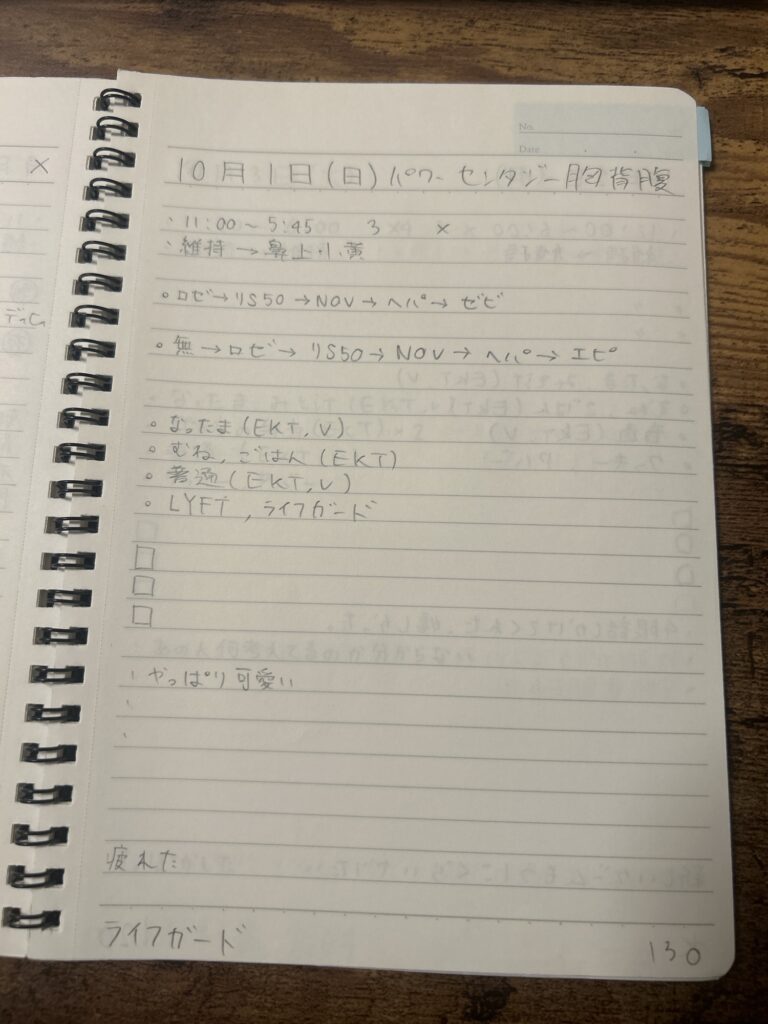 ×
ディム
No.
Date
10月1日(日)パワー センタジー胸背腹
・11:00～5:45 3 ×
・維持→鼻上小黄
。ロゼ→リS50→NOV→ヘパ→ゼビ
。無→ロゼ→リS50→NOV→ヘパ→エピ
。なったま(EKT,V)
。むね,ごはん(EKT)
。普通(EKT,V)
。LYFT,ライフガード
□
□
□
・やっぱり可愛い
・
・
疲れた
ライフガード
130